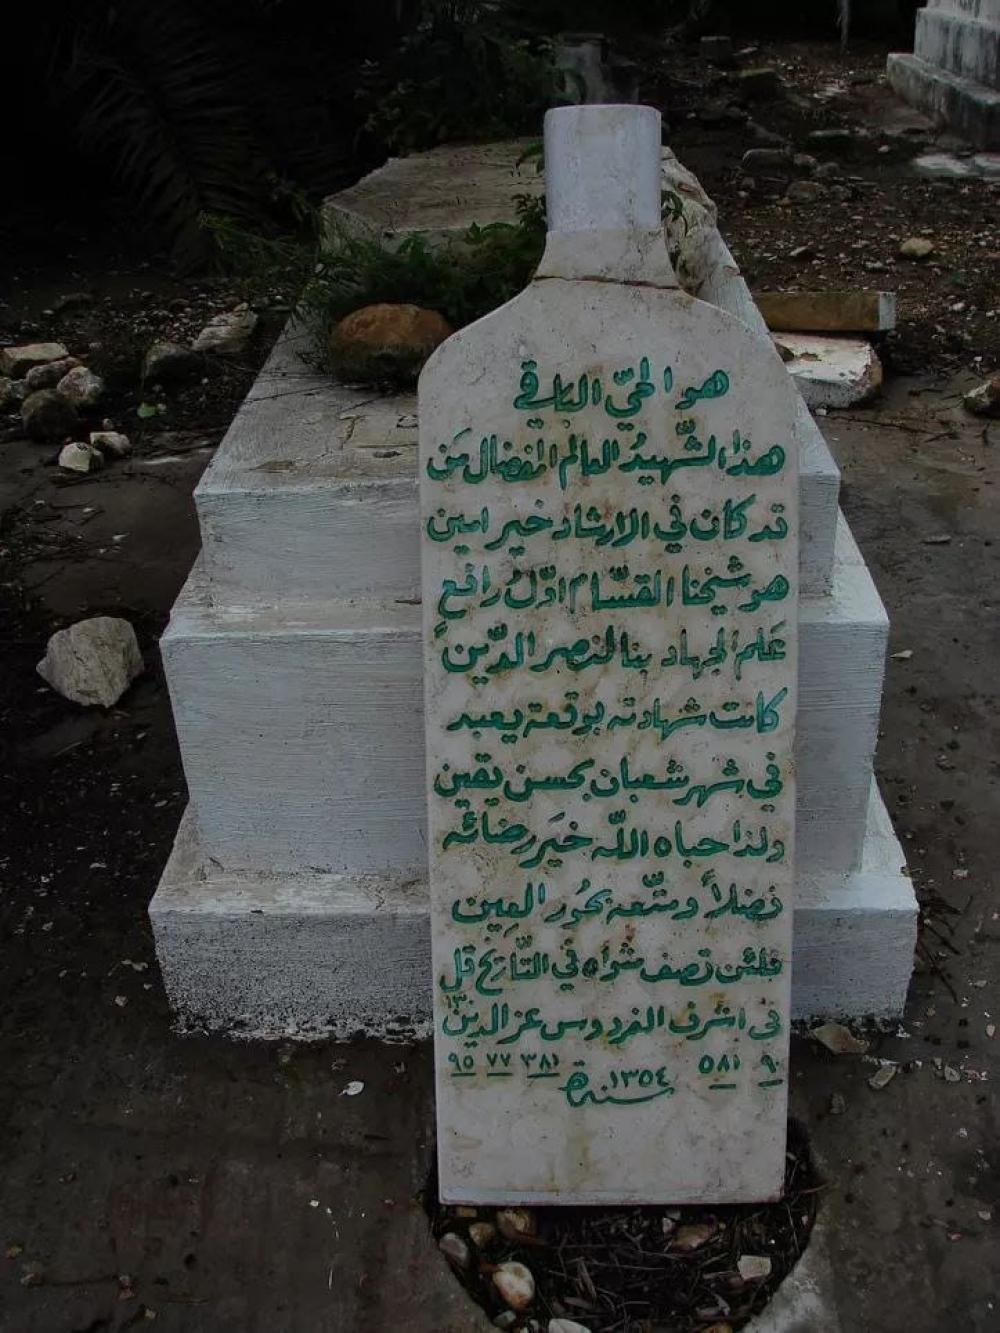 هو الحيّ الباقي
هذا الشّهيدُ العالم المفضال مَن
قد كان في الارشاد خير امين
هو شيخنا القسّام اوّلُ رافعٍ
عَلم الجهاد بنا لنصر الدّين
كانت شهادته بوقعة يعبد
في شهر شعبان بحسن يقين
ولذا حباه اللّه خيَر رضائه
فضلاً ومتّعه بحُور العِين
فلئن تصف مثواه في التّاريخ قل
في اشرف الفردوس عز الدين
٩٠ ٥٨١ ٣٨١ ٧٧ ٩٥
سنة ١٣٥٤ ه